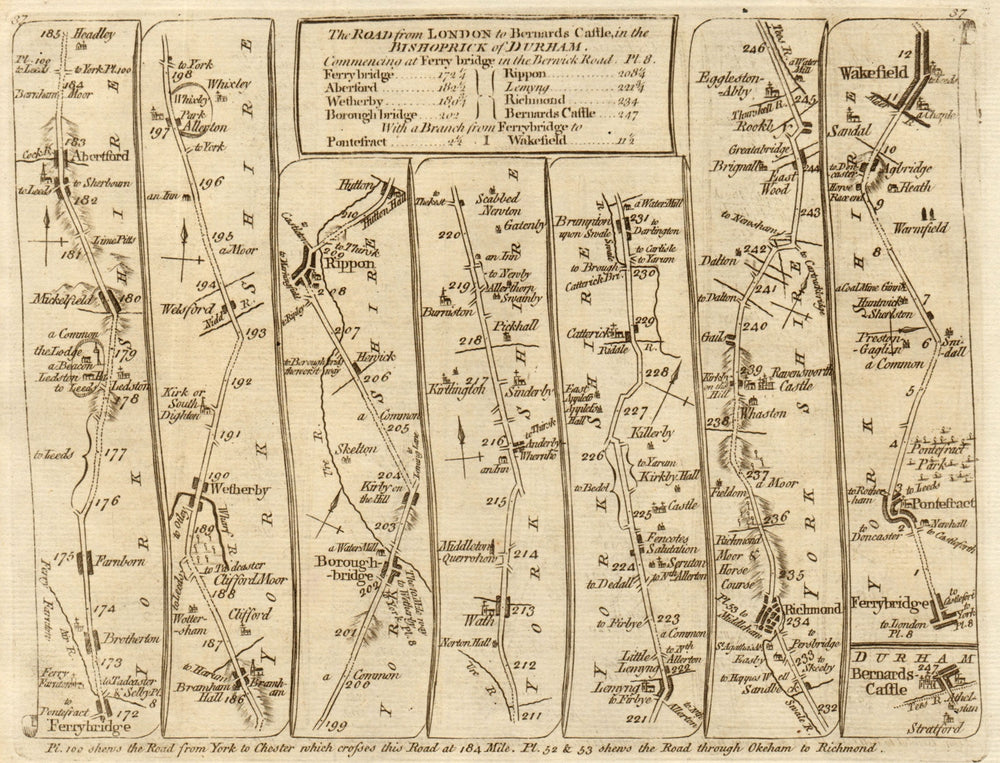 37
37
The ROAD from LONDON to Bernards Castle, in the
BISHOPRICK of DURHAM.
Commencing at Ferry bridge in the Berwick Road Pl. 8.
Ferrybridge 172¼ Rippon 208¼
Aberford 182½ Lemyng 221¾
Wetherby 189¾ Richmond 234
Borough bridge 202 Bernards Castle 247
With a Branch from Ferrybridge to
Pontefract 2½ I Wakefield 11½
185
Headley
Pl. 100
to Leeds
to York Pl. 100
184
Barnham Moor
183
Cock R.
Abertford
to Leeds
to Sherbourn
182
Lime Pitts
181
Mickelfield
180
a Common
the Lodge
179
a Beacon
Ledston
Ledston
to Leeds
178
to Leeds
177
176
175
Farnborn
Ferry Farnston
174
Brotherton
173
Ferry
to Tadcaster
K. Selby Pl.
8
to Pontefract
172
Ferrybridge
YORKSHIRE
to York
198
Whixley
Whixley
Park
197
Allerton
to York
196
an Inn
195
a Moor
194
Welsford
Nidd R.
193
192
Kirk or
South
Dighton
191
190
Wetherby
to Ripon
Wharf R.
189
to Tadcaster
Clifford Moor
to Leeds
188
Wotter-
sham
Clifford
187
to Harlow
Bramham
Hall
Bramh-
ham
186
YORKSHIRE
Hutton
Hutton Hall
210
to Thirsk
209
Rippon
208
to Ripley
207
to Borough bridge
the worst way
Hewick
206
a Common
205
Skelton
204
Kirby on
the Hill
Lemyng Lane
203
a Water Mill
Borough-
bridge
202
201
a Common
200
199
YORKSHIRE
Thekest
Scabbed
Newton
220
Gatenby
an Inn
to Newby
219
Allerthorn
Swainby
Burniston
Pickhall
218
217
Kirtlington
Sinderby
to Thirsk
216
Anderby
Whernho
an Inn
215
Middleton
Quernhow
214
213
Wath
Norton Hall
212
Ure R.
211
YORKSHIRE
a Water Mill
Brumpton
upon Swale
231
to
Darlington
Swale
to Carlisle
to Yarum
to Brough
230
Catterick Bri.
229
Catterick
Tudale
R.
228
East
Appleto
Appleton
Hall
227
Killerby
226
to Yarum
Kirkby Hall
to Bedal
Castle
225
Fencotes
Salutation
224
Scruton
to Nth. Allerton
to Dedall
223
to Firbye
a Common
to Nth.
Allerton
Little
Lemyng
222
Lemyng
to Firbye
221
to Nth.
Allerton
YORKSHIRE
246
Thees R.
a Water
Mill
Eggleston-
Abby
245
Thursgill R.
Rookby
Greatabridge
244
Brignall
East
Wood
243
to Newsham
242
Dalton
241
to Dalton
240
Gaile
239
Kirkby
on the
Hill
Ravensworth
Castle
Whaston
238
237
a Moor
Fieldom
236
Richmond
Moor
Horse
Course
235
Pl. 53 to
Middleham
Richmond
234
St. Agatha's A.
to Persbridge
Easby
233
to
Skeeby
to Happes W
Sandbe
Swale R.
232
YORKSHIRE
12
Wakefield
to Leeds
a Chaple
Sandal
10
to Don-
caster
Agbridge
Horse
Race end
Heath
9
Warmfield
8
a Coal Mine
7
Huntwick
Sherston
Preston
Gaglin
6
Sni-
dall
a Common
5
4
Pontefract
Park
to Rother-
ham
3
to Leeds
Pontefract
to
Doncaster
2
Newhall
to Castleforth
1
Ferrybridge
to London
Pl. 8
to
York
Pl. 8
YORKSHIRE
DURHAM
247
Bernards-
Castle
Tees R.
Athel-
stan
Stratford
Pl. 100 shews the Road from York to Chester which crosses this Road at 184 Mile. Pl. 52 & 53 shews the Road through Okeham to Richmond.